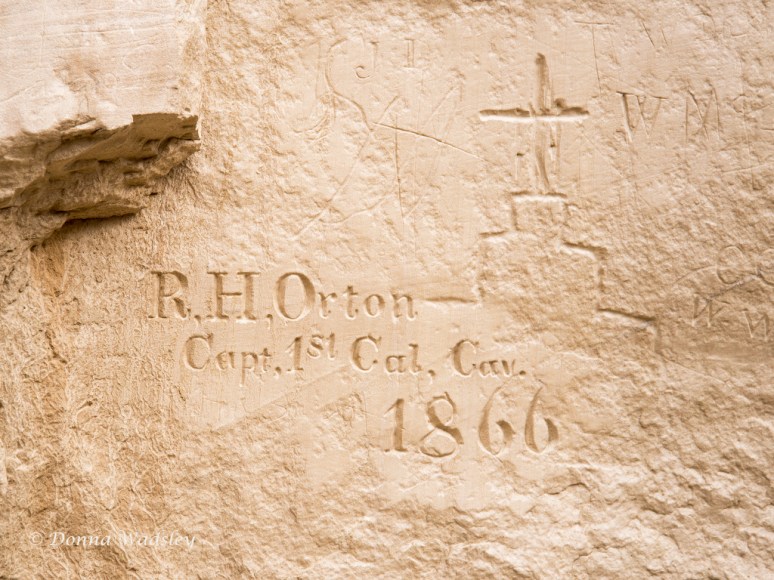 T W
W M
R. H. Orton
Capt. 1st Cal. Cav.
1866
© Donna Wadsley